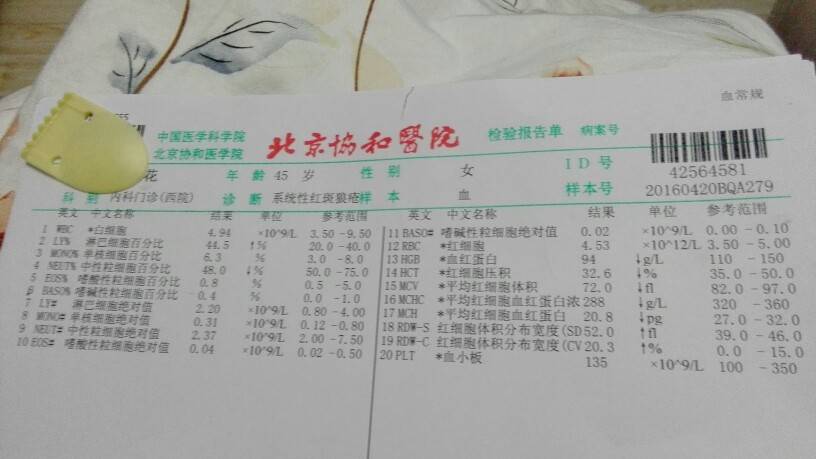 血常规
中国医学科学院
北京协和医学院
北京协和醫院
检验报告单 病案号
花 年 龄 45 岁 性 别 女 ID号 42564581
科 别 内科门诊(西院) 诊 断 系统性红斑狼疮 样 本 血 样本号 20160420BQA279
英文 中文名称 结果 单位 参考范围
1 WBC *白细胞 4.94 ×10^9/L 3.50 -9.50
2 LY% 淋巴细胞百分比 44.5 ↑% 20.0 -40.0
3 MONO% 单核细胞百分比 6.3 % 3.0 -8.0
4 NEUT% 中性粒细胞百分比 48.0 ↓% 50.0 -75.0
5 EOS% 嗜酸性粒细胞百分比 0.8 % 0.5 -5.0
6 BASO% 嗜碱性粒细胞百分比 0.4 % 0.0 -1.0
7 LY# 淋巴细胞绝对值 2.20 ×10^9/L 0.80 -4.00
8 MONO# 单核细胞绝对值 0.31 ×10^9/L 0.12 -0.80
9 NEUT# 中性粒细胞绝对值 2.37 ×10^9/L 2.00 -7.50
10 EOS# 嗜酸性粒细胞绝对值 0.04 ×10^9/L 0.02 -0.50
英文 中文名称 结果 单位 参考范围
11 BASO# 嗜碱性粒细胞绝对值 0.02 ×10^9/L 0.00 -0.10
12 RBC *红细胞 4.53 ×10^12/L 3.50 -5.00
13 HGB *血红蛋白 94 ↓g/L 110 -150
14 HCT *红细胞压积 32.6 ↓% 35.0 -50.0
15 MCV *平均红细胞体积 72.0 ↓fl 82.0 -97.0
16 MCHC *平均红细胞血红蛋白浓 288 ↓g/L 320 -360
17 MCH *平均红细胞血红蛋白 20.8 ↓pg 27.0 -32.0
18 RDW-S 红细胞体积分布宽度(SD 52.0 ↑fl 39.0 -46.0
19 RDW-C 红细胞体积分布宽度(CV 20.3 ↑% 0.0 -15.0
20 PLT *血小板 135 ×10^9/L 100 -350